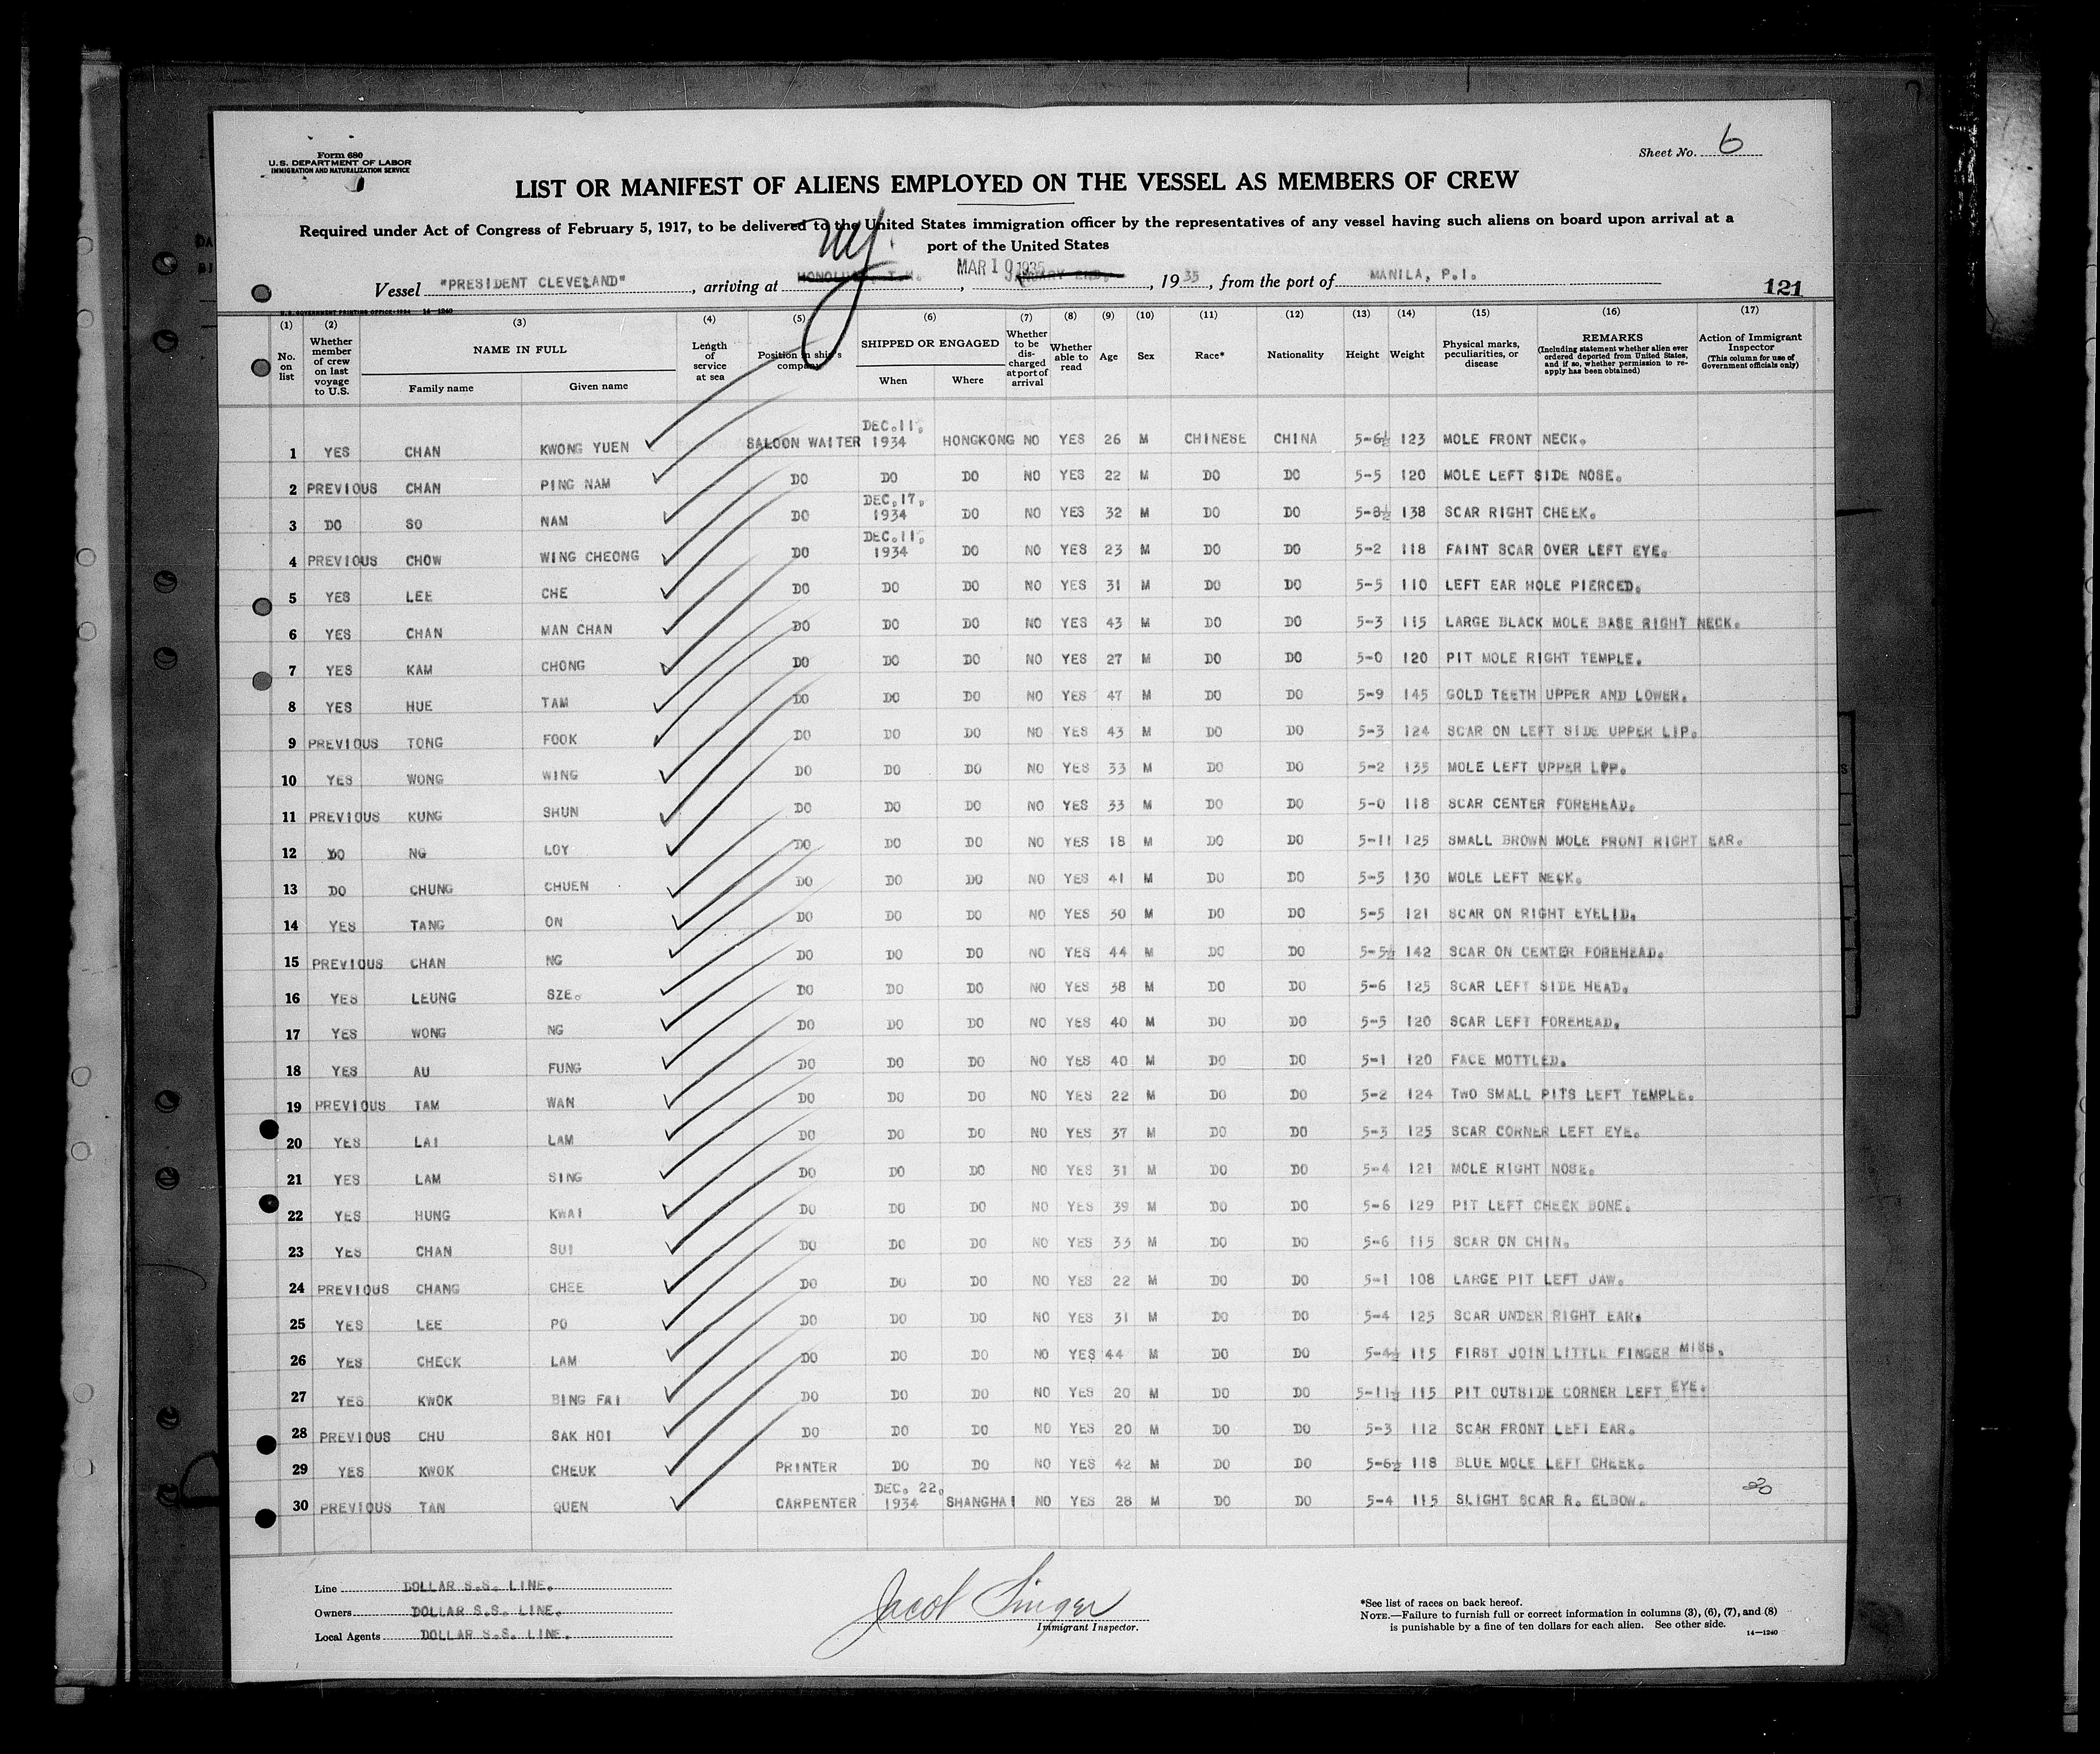 Form 680
U.S. DEPARTMENT OF LABOR
IMMIGRATION AND NATURALIZATION SERVICE
Sheet No. 6
LIST OR MANIFEST OF ALIENS EMPLOYED ON THE VESSEL AS MEMBERS OF CREW
Required under Act of Congress of February 5, 1917, to be delivered to the United States immigration officer by the representatives of any vessel having such aliens on board upon arrival at a
port of the United States
Vessel "PRESIDENT CLEVELAND", arriving at HONOLULU, T.H. NY. , MAR 19 1935, 1935, from the port of MANILA, P.I.
121
U.S. GOVERNMENT PRINTING OFFICE: 1934 14-1240
(1) (2) (3) (4) (5) (6) (7) (8) (9) (10) (11) (12) (13) (14) (15) (16) (17)
No. on list Whether member of crew on last voyage to U.S. NAME IN FULL Family name Given name Length of service at sea Position in ship's company SHIPPED OR ENGAGED When Where Whether to be discharged at port of arrival Whether able to read Age Sex Race* Nationality Height Weight Physical marks, peculiarities, or disease REMARKS (Including statement whether alien ever ordered deported from United States, and if so, whether permission to reapply has been obtained) Action of Immigrant Inspector (This column for use of Government officials only)
1 YES CHAN KWONG YUEN SALOON WAITER DEC.11, 1934 HONGKONG NO YES 26 M CHINESE CHINA 5-6½ 123 MOLE FRONT NECK.
2 PREVIOUS CHAN PING NAM DO DO DO NO YES 22 M DO DO 5-5 120 MOLE LEFT SIDE NOSE.
3 DO SO NAM DO DEC.17, 1934 DO NO YES 32 M DO DO 5-8½ 138 SCAR RIGHT CHEEK.
4 PREVIOUS CHOW WING CHEONG DO DEC.11, 1934 DO NO YES 23 M DO DO 5-2 118 FAINT SCAR OVER LEFT EYE.
5 YES LEE CHE DO DO DO NO YES 31 M DO DO 5-5 110 LEFT EAR HOLE PIERCED.
6 YES CHAN MAN CHAN DO DO DO NO YES 43 M DO DO 5-3 115 LARGE BLACK MOLE BASE RIGHT NECK.
7 YES KAM CHONG DO DO DO NO YES 27 M DO DO 5-0 120 PIT MOLE RIGHT TEMPLE.
8 YES HUE TAM DO DO DO NO YES 47 M DO DO 5-9 145 GOLD TEETH UPPER AND LOWER.
9 PREVIOUS TONG FOOK DO DO DO NO YES 43 M DO DO 5-3 124 SCAR ON LEFT SIDE UPPER LIP.
10 YES WONG WING DO DO DO NO YES 33 M DO DO 5-2 135 MOLE LEFT UPPER LIP.
11 PREVIOUS KUNG SHUN DO DO DO NO YES 33 M DO DO 5-0 118 SCAR CENTER FOREHEAD.
12 DO NG LOY DO DO DO NO YES 18 M DO DO 5-11 125 SMALL BROWN MOLE FRONT RIGHT EAR.
13 DO CHUNG CHUEN DO DO DO NO YES 41 M DO DO 5-5 130 MOLE LEFT NECK.
14 YES TANG ON DO DO DO NO YES 30 M DO DO 5-5 121 SCAR ON RIGHT EYELID.
15 PREVIOUS CHAN NG DO DO DO NO YES 44 M DO DO 5-5½ 142 SCAR ON CENTER FOREHEAD.
16 YES LEUNG SZE. DO DO DO NO YES 38 M DO DO 5-6 125 SCAR LEFT SIDE HEAD.
17 YES WONG NG DO DO DO NO YES 40 M DO DO 5-5 120 SCAR LEFT FOREHEAD.
18 YES AU FUNG DO DO DO NO YES 40 M DO DO 5-1 120 FACE MOTTLED.
19 PREVIOUS TAM WAN DO DO DO NO YES 22 M DO DO 5-2 124 TWO SMALL PITS LEFT TEMPLE.
20 YES LAI LAM DO DO DO NO YES 37 M DO DO 5-3 125 SCAR CORNER LEFT EYE.
21 YES LAM SING DO DO DO NO YES 31 M DO DO 5-4 121 MOLE RIGHT NOSE.
22 YES HUNG KWAI DO DO DO NO YES 39 M DO DO 5-6 129 PIT LEFT CHEEK BONE.
23 YES CHAN SUI DO DO DO NO YES 33 M DO DO 5-6 115 SCAR ON CHIN.
24 PREVIOUS CHANG CHEE DO DO DO NO YES 22 M DO DO 5-1 108 LARGE PIT LEFT JAW.
25 YES LEE PO DO DO DO NO YES 31 M DO DO 5-4 125 SCAR UNDER RIGHT EAR.
26 YES CHECK LAM DO DO DO NO YES 44 M DO DO 5-4½ 115 FIRST JOIN LITTLE FINGER MISS.
27 YES KWOK BING FAI DO DO DO NO YES 20 M DO DO 5-11½ 115 PIT OUTSIDE CORNER LEFT EYE.
28 PREVIOUS CHU SAK HOI DO DO DO NO YES 20 M DO DO 5-3 112 SCAR FRONT LEFT EAR.
29 YES KWOK CHEUK PRINTER DO DO NO YES 42 M DO DO 5-6½ 118 BLUE MOLE LEFT CHEEK.
30 PREVIOUS TAN QUEN CARPENTER DEC. 22, 1934 SHANGHAI NO YES 28 M DO DO 5-4 115 SLIGHT SCAR R. ELBOW. 30
Line DOLLAR S.S. LINE.
Owners DOLLAR S.S. LINE.
Local Agents DOLLAR S.S. LINE.
Jacob Singer
Immigrant Inspector.
*See list of races on back hereof.
NOTE.—Failure to furnish full or correct information in columns (3), (6), (7), and (8)
is punishable by a fine of ten dollars for each alien. See other side.
14-1240